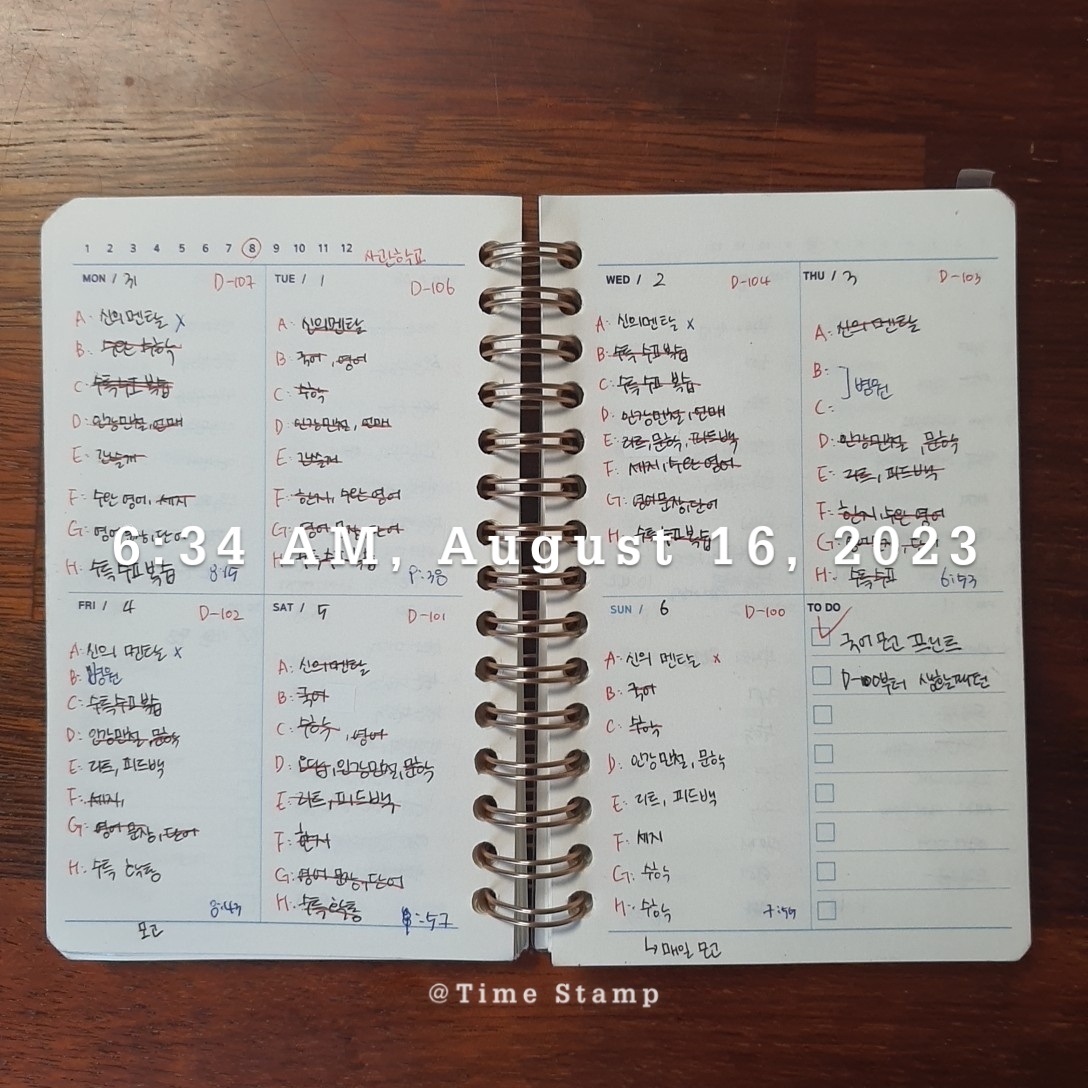 1 2 3 4 5 6 7 8 9 10 11 12 사관학교
MON / 31 D-107
A: 신의 멘탈 x
B: 수완 수학
C: 수특 수고 복습
D: 인강민철, 언매
E:
F: 수완 영어, 세지
G: 영어 단어
H: 수특 수고 복습 8:19
TUE / 1 D-106
A: 신의 멘탈
B: 국어, 영어
C: 수학
D: 인강민철, 언매
E:
F: 한지, 수완 영어
G: 영어 문장, 단어
H: 9:38
WED / 2 D-104
A: 신의 멘탈 x
B: 수특 수고 복습
C: 수특 수고 복습
D: 인강민철, 언매
E: 리트, 문학, 피드백
F: 세지, 수완 영어
G: 영어 문장, 단어
H: 수특 수고 복습
THU / 3 D-103
A: 신의 멘탈
B: ] 병원
C:
D: 인강민철, 문학
E: 리트, 피드백
F: 한지, 수완 영어
G:
H: 수특 수고 6:53
6:34 AM, August 16, 2023
FRI / 4 D-102
A: 신의 멘탈 x
B: 병원
C: 수특 수고 복습
D: 인강민철, 문학
E: 리트, 피드백
F: 세지,
G: 영어 문장, 단어
H: 수특 확통
8:43
모고
SAT / 5 D-101
A: 신의 멘탈
B: 국어
C: 수학, 영어
D: 인강민철, 문학
E: 리트, 피드백
F: 한지
G: 영어 문장, 단어
H: 수특 확통
:57
SUN / 6 D-100
A: 신의 멘탈 x
B: 국어
C: 수학
D: 인강민철, 문학
E: 리트, 피드백
F: 세지
G: 수학
H: 수학 7:59
↳ 매일 모고
TO DO
국어 모고 프린트
D-100부터 생활패턴
@Time Stamp